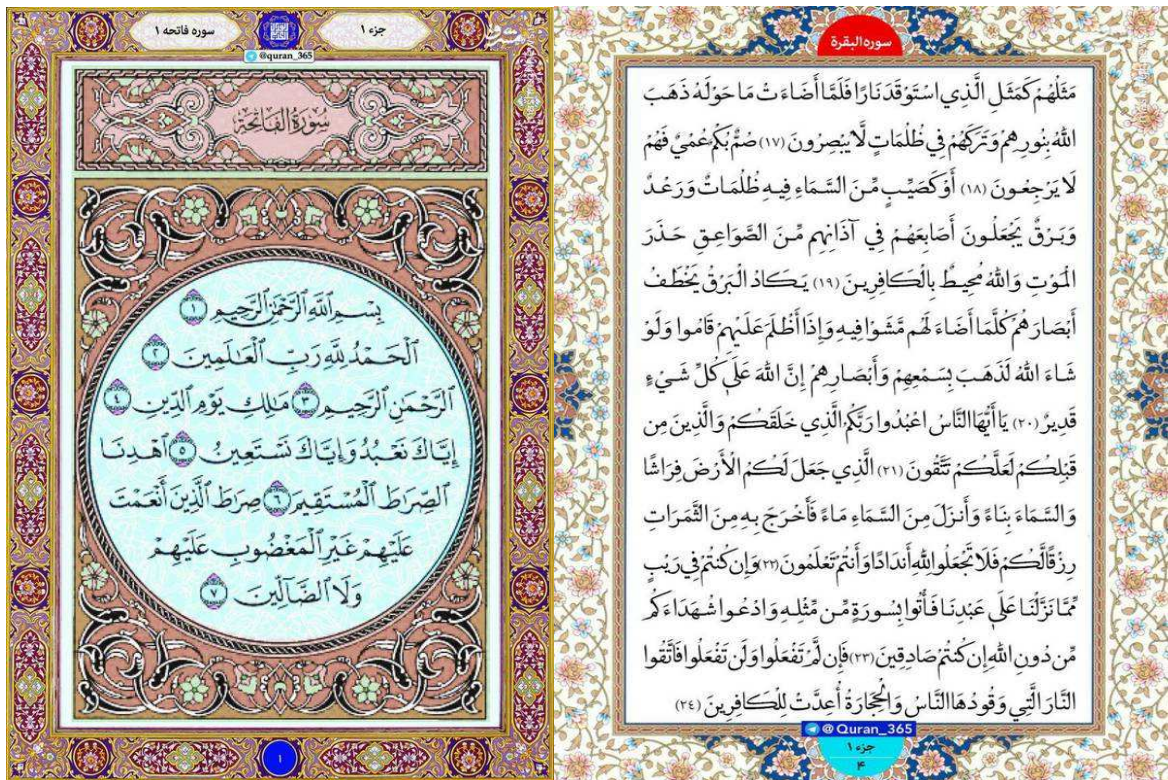 سوره فاتحه ١
جزء ١
@quran_365
سُورَةُ الفَاتِحَةِ
بِسْمِ ٱللَّهِ ٱلرَّحْمَٰنِ ٱلرَّحِيمِ ١
ٱلْحَمْدُ لِلَّهِ رَبِّ ٱلْعَٰلَمِينَ ٢
ٱلرَّحْمَٰنِ ٱلرَّحِيمِ ٣ مَٰلِكِ يَوْمِ ٱلدِّينِ ٤
إِيَّاكَ نَعْبُدُ وَإِيَّاكَ نَسْتَعِينُ ٥ ٱهْدِنَا
ٱلصِّرَٰطَ ٱلْمُسْتَقِيمَ ٦ صِرَٰطَ ٱلَّذِينَ أَنْعَمْتَ
عَلَيْهِمْ غَيْرِ ٱلْمَغْضُوبِ عَلَيْهِمْ
وَلَا ٱلضَّآلِّينَ ٧
١
سوره البقرة
مَثَلُهُمْ كَمَثَلِ الَّذِي اسْتَوْقَدَ نَارًا فَلَمَّا أَضَاءَتْ مَا حَوْلَهُ ذَهَبَ
اللَّهُ بِنُورِهِمْ وَتَرَكَهُمْ فِي ظُلُمَاتٍ لَّا يُبْصِرُونَ (١٧) صُمٌّ بُكْمٌ عُمْيٌ فَهُمْ
لَا يَرْجِعُونَ (١٨) أَوْ كَصَيِّبٍ مِّنَ السَّمَاءِ فِيهِ ظُلُمَاتٌ وَرَعْدٌ
وَبَرْقٌ يَجْعَلُونَ أَصَابِعَهُمْ فِي آذَانِهِم مِّنَ الصَّوَاعِقِ حَذَرَ
الْمَوْتِ وَاللَّهُ مُحِيطٌ بِالْكَافِرِينَ (١٩) يَكَادُ الْبَرْقُ يَخْطَفُ
أَبْصَارَهُمْ كُلَّمَا أَضَاءَ لَهُم مَّشَوْا فِيهِ وَإِذَا أَظْلَمَ عَلَيْهِمْ قَامُوا وَلَوْ
شَاءَ اللَّهُ لَذَهَبَ بِسَمْعِهِمْ وَأَبْصَارِهِمْ إِنَّ اللَّهَ عَلَى كُلِّ شَيْءٍ
قَدِيرٌ (٢٠) يَا أَيُّهَا النَّاسُ اعْبُدُوا رَبَّكُمُ الَّذِي خَلَقَكُمْ وَالَّذِينَ مِن
قَبْلِكُمْ لَعَلَّكُمْ تَتَّقُونَ (٢١) الَّذِي جَعَلَ لَكُمُ الْأَرْضَ فِرَاشًا
وَالسَّمَاءَ بِنَاءً وَأَنزَلَ مِنَ السَّمَاءِ مَاءً فَأَخْرَجَ بِهِ مِنَ الثَّمَرَاتِ
رِزْقًا لَّكُمْ فَلَا تَجْعَلُوا لِلَّهِ أَندَادًا وَأَنتُمْ تَعْلَمُونَ (٢٢) وَإِن كُنتُمْ فِي رَيْبٍ
مِّمَّا نَزَّلْنَا عَلَى عَبْدِنَا فَأْتُوا بِسُورَةٍ مِّن مِّثْلِهِ وَادْعُوا شُهَدَاءَكُم
مِّن دُونِ اللَّهِ إِن كُنتُمْ صَادِقِينَ (٢٣) فَإِن لَّمْ تَفْعَلُوا وَلَن تَفْعَلُوا فَاتَّقُوا
النَّارَ الَّتِي وَقُودُهَا النَّاسُ وَالْحِجَارَةُ أُعِدَّتْ لِلْكَافِرِينَ (٢٤)
@Quran_365
جزء ١
۴